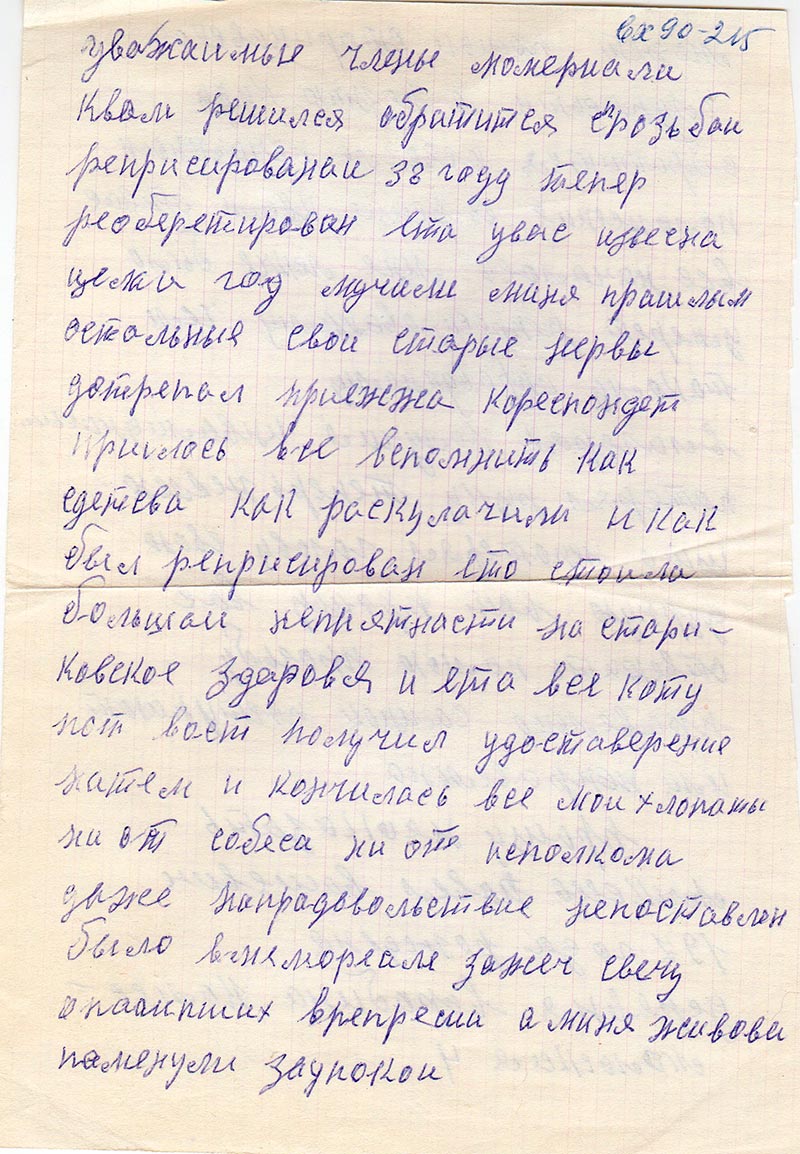 вх 90-215
уважаимые члены момериали
Квам решился обратится с прозьбои
реприсированаи 38 году тепер
реоберетирован ета увас извесна
целжи год мучили миня прашлым
остальные свои старые нервы
дотрепал приежжа кореспондет
пришлось все вспомнить как
сдетсва как раскулачили и как
был реприсирован ето стоила
большои неприятнасти на стари-
ковское здаровя и ета все кату
потваст получил удоставерение
натем и кончилась все мои хлопаты
ни от собеса ни от исполкома
даже напрадовольствие непоставлен
было вмемореале зажеч свечу
опаличших врепресии а миня живова
паменули заупокои